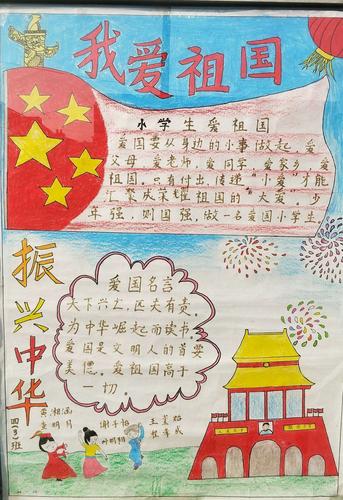 我爱祖国
小学生爱祖国
爱国要从身边的小事做起，爱
父母，爱老师，爱同学，爱家乡，爱
祖国，只有付出、传递"小爱"才能
汇聚成荣耀祖国的"大爱"，少
年强，则国强，做一名爱国小学生
振兴中华
爱国名言
天下兴亡，匹夫有责，
为中华崛起而读书
爱国是文明人的首要
美德，爱祖国高于
一切，
四（3）班